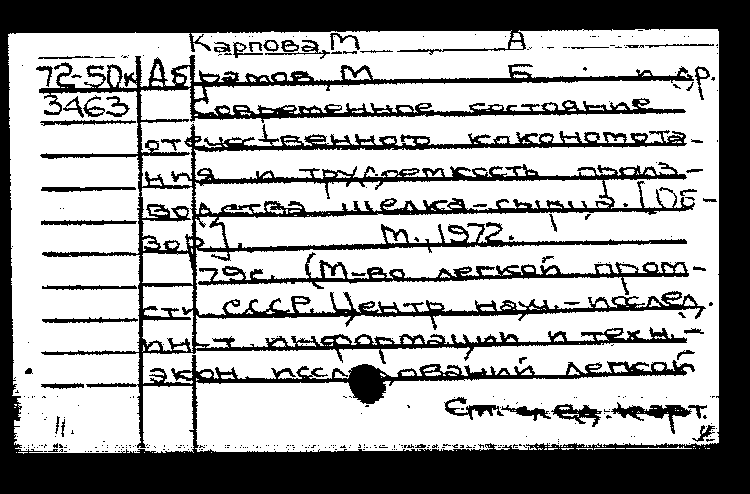 Карпова, М А
72-50к Абрамов, М Б. и др.
3463 Современное состояние
отечественного кокономота-
ния и трудоемкость произ-
водства шелка-сырца. [Об-
зор]. М., 1972.
79с. (М-во легкой пром-
сти СССР. Центр. науч.-исслед.
ин-т. информации и техн.-
экон. исследований легкой
См. след. карт.
11.